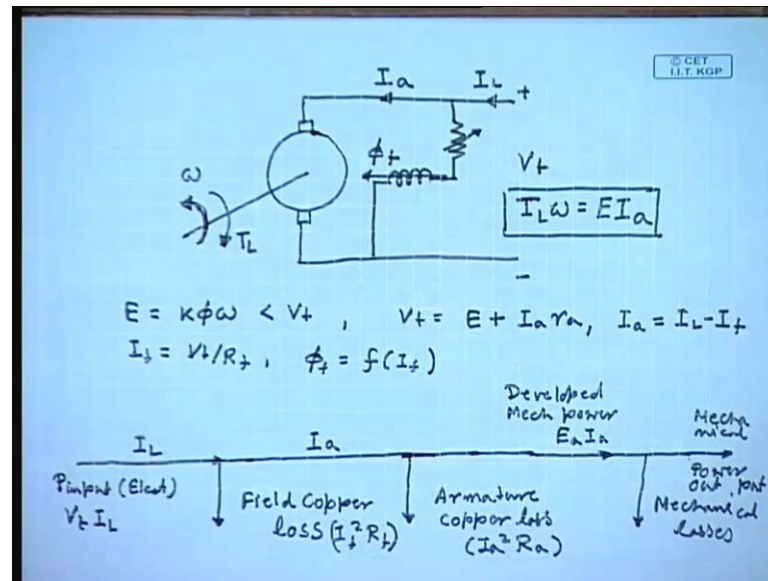 © CET
I.I.T. KGP
Ia
IL
+
ϕf
Vt
ω
TL
ILω = EIa
-
E = KϕW < Vt , Vt = E + Ia ra, Ia = IL - If
If = Vt/Rf , ϕf = f(If)
Developed
Mech power
EaIa
Mecha
nical
Power
out put
IL
Ia
Pinput (Elect)
Vt IL
Field Copper
loss (If²Rf)
Armature
copper loss
(Ia²Ra)
Mechanical
losses